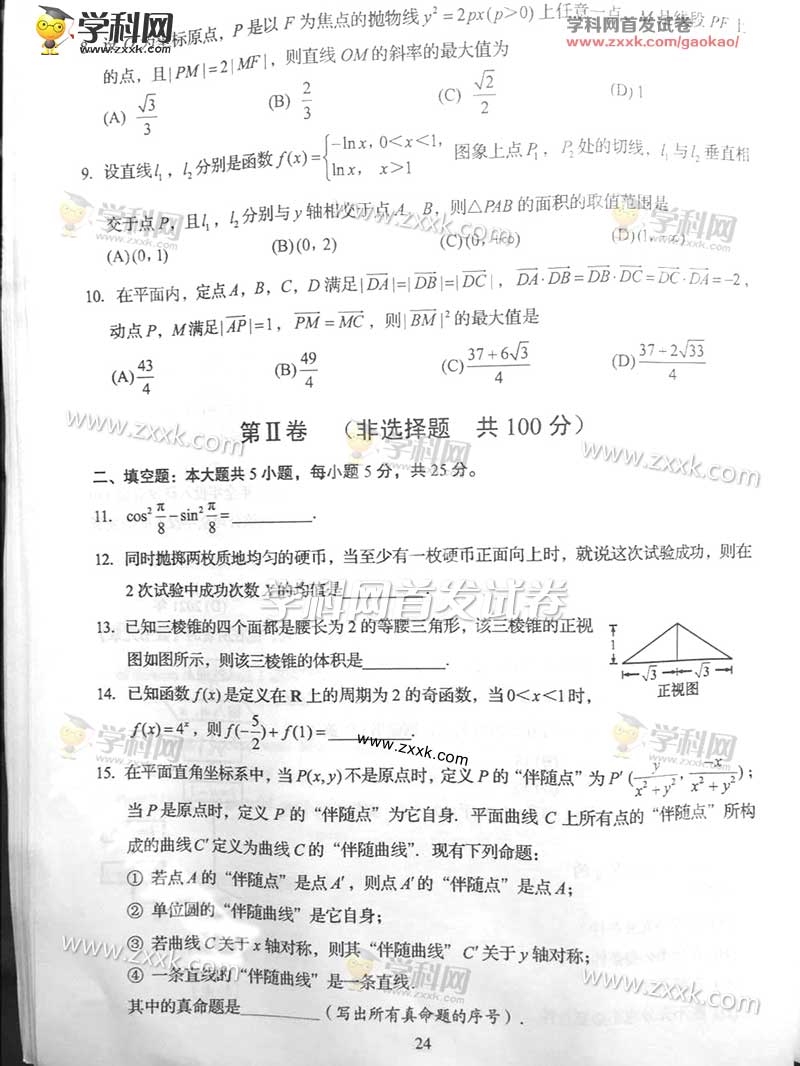 学科网 www.zxxk.com
学科网首发试卷
www.zxxk.com/gaokao/
标原点, P是以F为焦点的抛物线y²=2px(p>0)上任意一点, M是线段PF上
的点, 且|PM|=2|MF|, 则直线OM的斜率的最大值为
(A) √3/3 (B) 2/3 (C) √2/2 (D) 1
9. 设直线l₁, l₂分别是函数f(x)={-ln x, 0<x<1, ln x, x>1 图象上点P₁, P₂处的切线, l₁与l₂垂直相
交于点P, 且l₁, l₂分别与y轴相交于点A, B, 则△PAB的面积的取值范围是
(A)(0, 1) (B)(0, 2) (C)(0, +∞) (D)(1, +∞)
10. 在平面内, 定点A, B, C, D满足|DA|=|DB|=|DC|, DA·DB=DB·DC=DC·DA=-2,
动点P, M满足|AP|=1, PM=MC, 则|BM|²的最大值是
(A) 43/4 (B) 49/4 (C) (37+6√3)/4 (D) (37+2√33)/4
第Ⅱ卷 (非选择题 共100分)
二、填空题: 本大题共5小题, 每小题5分, 共25分。
11. cos² π/8 - sin² π/8 = ________.
12. 同时抛掷两枚质地均匀的硬币, 当至少有一枚硬币正面向上时, 就说这次试验成功, 则在
2次试验中成功次数X的均值是________.
13. 已知三棱锥的四个面都是腰长为2的等腰三角形, 该三棱锥的正视
图如图所示, 则该三棱锥的体积是________.
1
√3 √3
正视图
14. 已知函数f(x)是定义在R上的周期为2的奇函数, 当0<x<1时,
f(x)=4ˣ, 则f(-5/2)+f(1)= ________.
15. 在平面直角坐标系中, 当P(x, y)不是原点时, 定义P的“伴随点”为P′(y/(x²+y²), -x/(x²+y²));
当P是原点时, 定义P的“伴随点”为它自身. 平面曲线C上所有点的“伴随点”所构
成的曲线C′定义为曲线C的“伴随曲线”. 现有下列命题:
① 若点A的“伴随点”是点A′, 则点A′的“伴随点”是点A;
② 单位圆的“伴随曲线”是它自身;
③ 若曲线C关于x轴对称, 则其“伴随曲线”C′关于y轴对称;
④ 一条直线的“伴随曲线”是一条直线.
其中的真命题是________(写出所有真命题的序号).
24